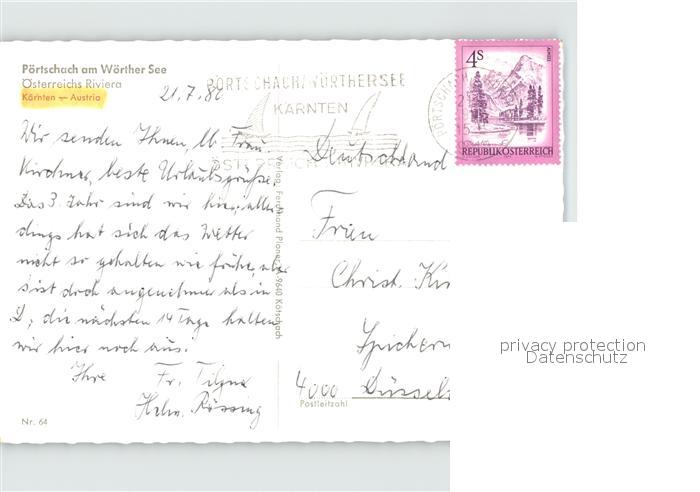 Pörtschach am Wörther See
Österreichs Riviera
Kärnten — Austria
21.7.80
PÖRTSCHACH/WÖRTHERSEE
KÄRNTEN
4S
REPUBLIK ÖSTERREICH
Wir senden Ihnen, lb. Frau
Kirchner, beste Urlaubsgrüße.
Das 3. Jahr sind wir hier, aller
dings hat sich das Wetter
nicht so gehalten wie früher, aber
s'ist doch angenehmer als in
D, die nächsten 14 Tage halten
wir hier noch aus!
Ihre Fr.
Helm. Rössing
Nr. 64
Verlag Ferdinand 9640 Kötschach
Deutschland
Christ. Ki
Spichern
4000 Düssel
Postleitzahl
privacy protection
Datenschutz